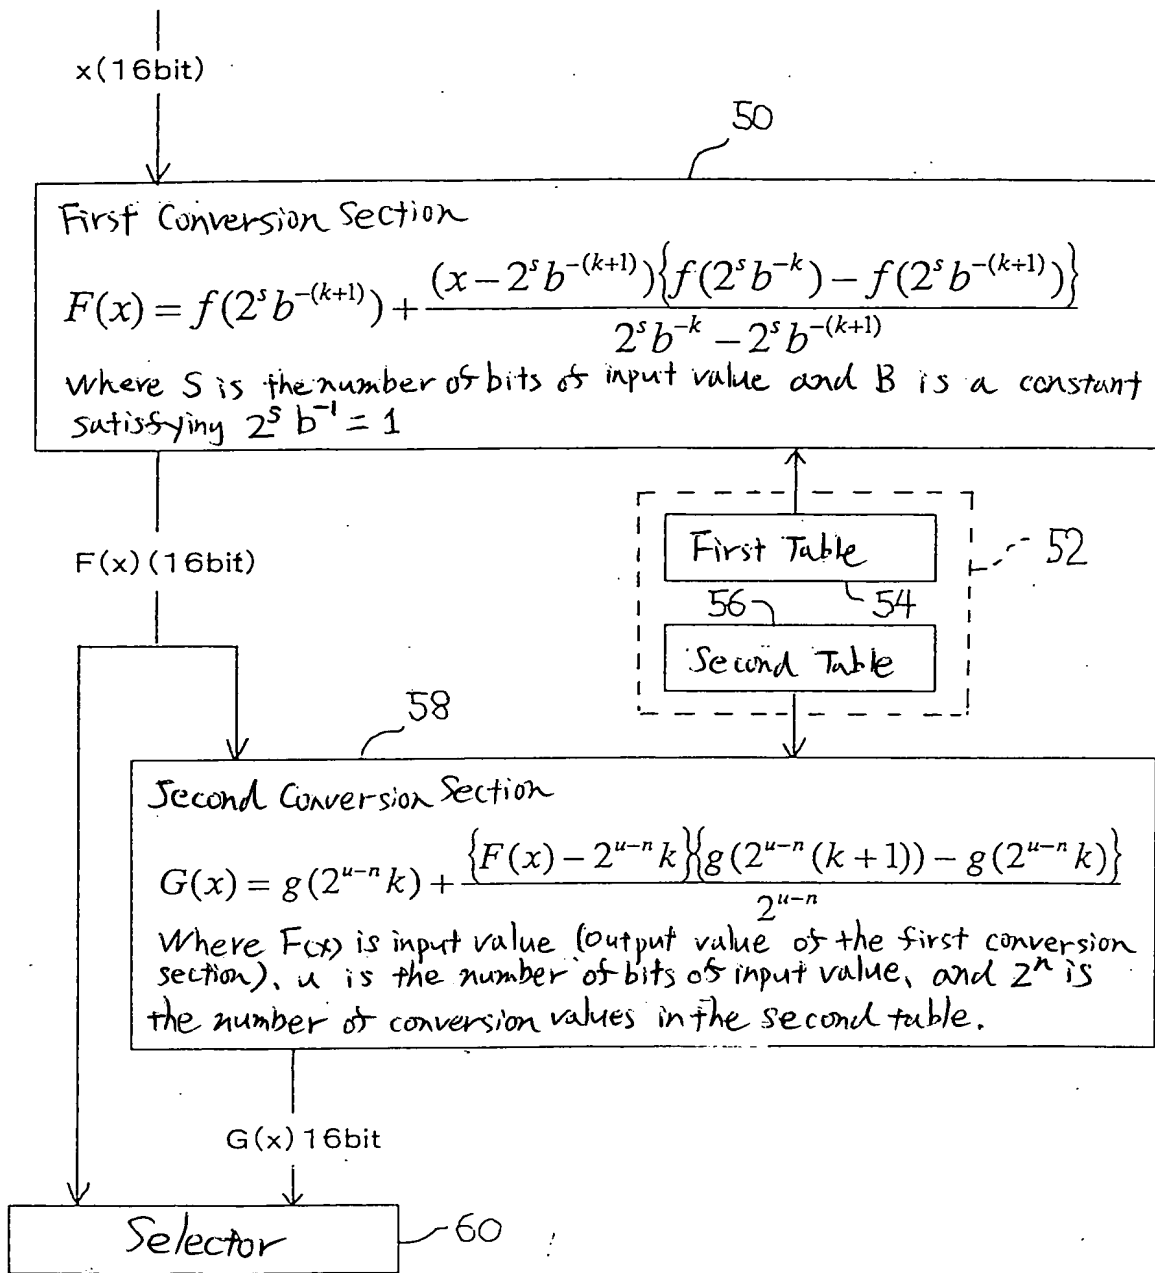 x(16bit)
50
First Conversion Section
F(x) = f(2^s b^{-(k+1)}) + \frac{(x - 2^s b^{-(k+1)})\{f(2^s b^{-k}) - f(2^s b^{-(k+1)})\}}{2^s b^{-k} - 2^s b^{-(k+1)}}
where S is the number of bits of input value and B is a constant
satisfying 2^s b^{-1} = 1
F(x)(16bit)
First Table
52
56
54
Second Table
58
Second Conversion Section
G(x) = g(2^{u-n} k) + \frac{\{F(x) - 2^{u-n} k\}\{g(2^{u-n}(k+1)) - g(2^{u-n} k)\}}{2^{u-n}}
Where F(x) is input value (output value of the first conversion
section), u is the number of bits of input value, and 2^n is
the number of conversion values in the second table.
G(x) 16bit
Selector
60